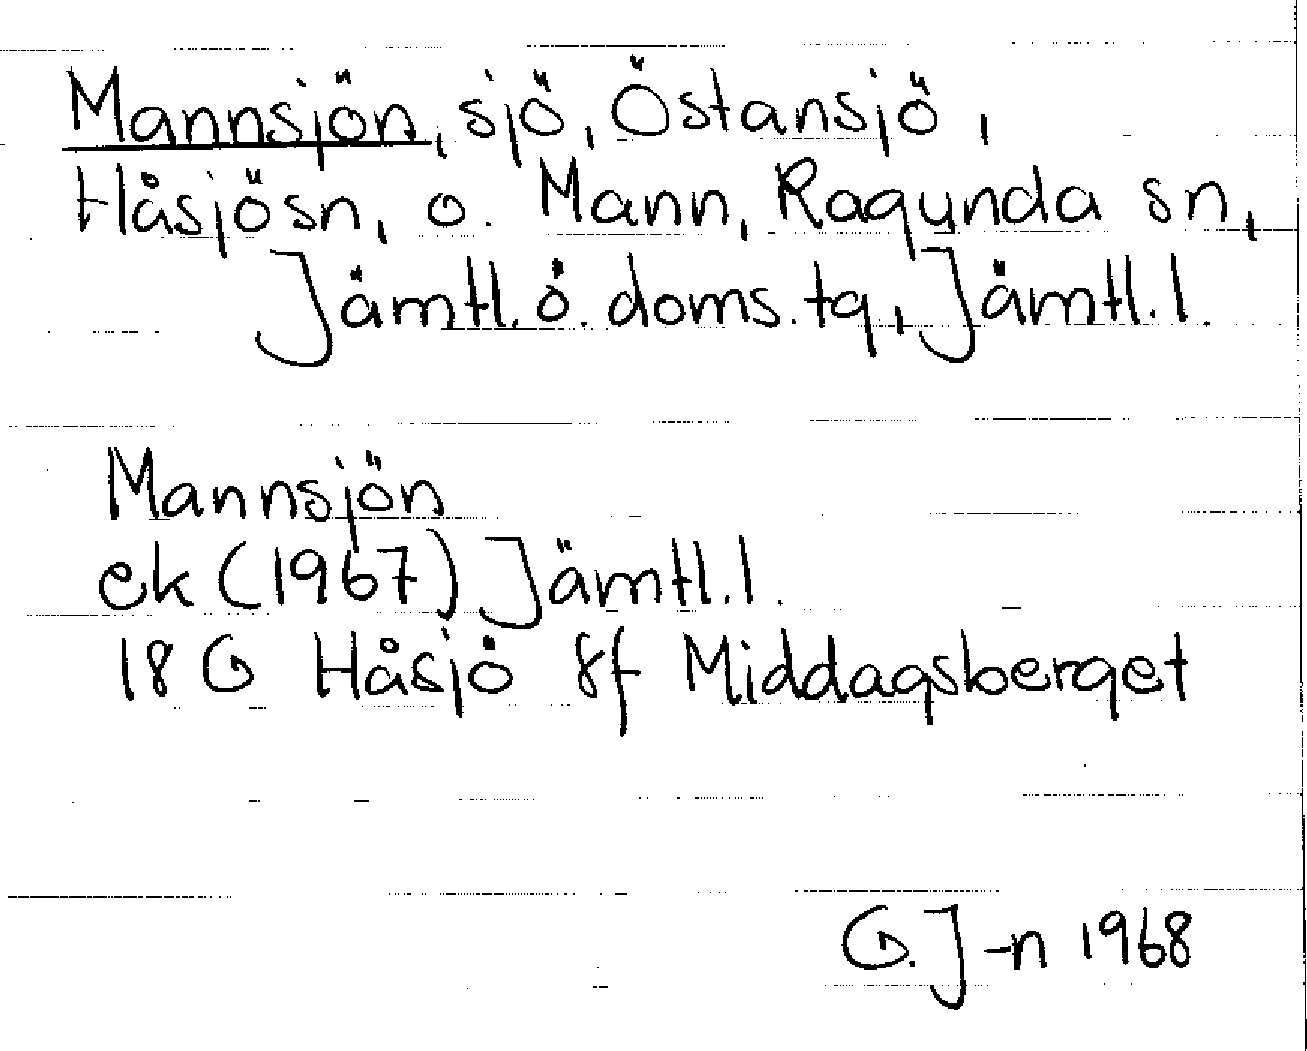 Mannsjön, sjö, Östansjö,
Håsjö sn, o. Mann, Ragunda sn,
Jämtl. ö. doms. tg, Jämtl. l.
Mannsjön
ek (1967) Jämtl. l.
18 G Håsjö 8f Middagsberget
G. J-n 1968